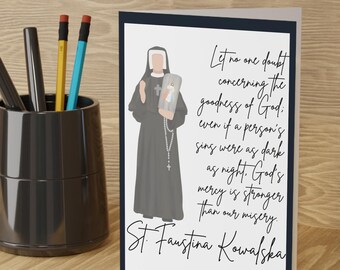 Let no one doubt
concerning the
goodness of God;
even if a person's
sins were as dark
as night, God's
mercy is stronger
than our misery
St. Faustina Kowalska